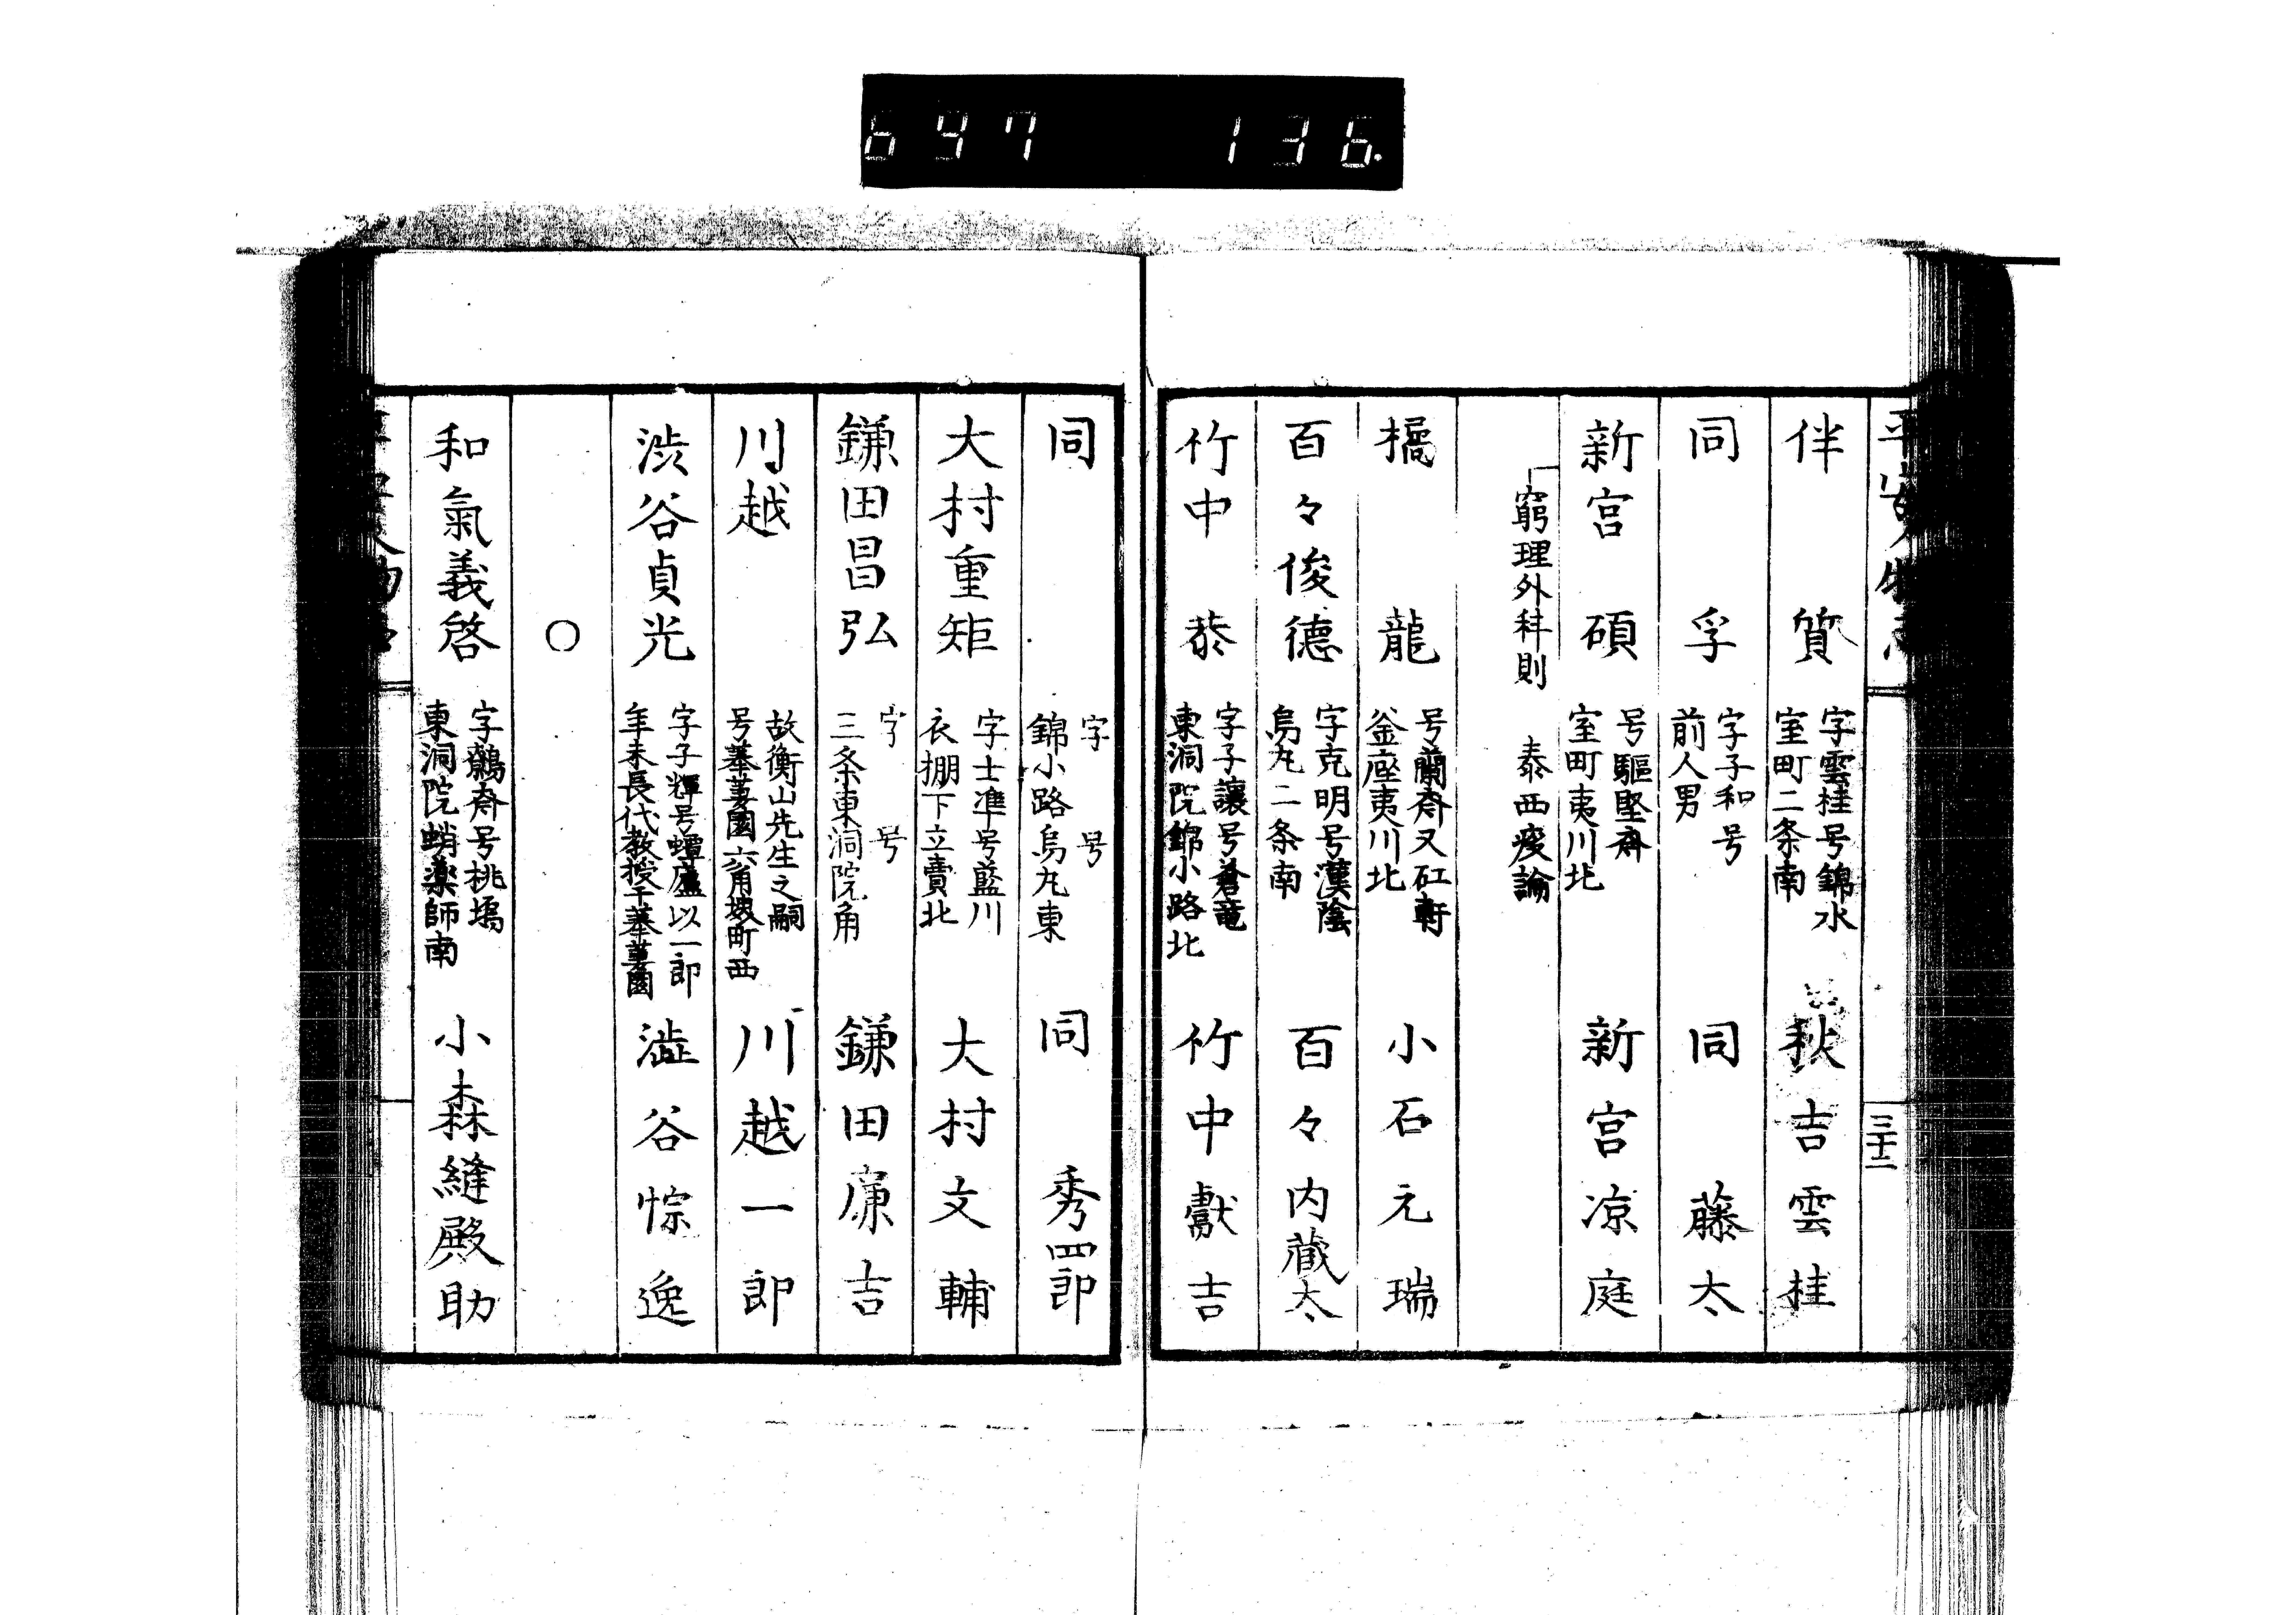 697 136.
三十二
伴 質 字雲桂号錦水 室町二条南 秋吉雲桂
同 孚 字子和号 前人男 同 藤太
新宮 碩 号驅豎斎 室町夷川北 新宮凉庭
窮理外科則 泰西疫論
橘 龍 号蘭斎又矼軒 釜座夷川北 小石元瑞
百々俊德 字克明号漢陰 烏丸二条南 百々内藏太
竹中 㳟 字子讓号蒼竜 東洞院錦小路北 竹中獻吉
同 字 号 錦小路烏丸東 同 秀四郎
大村重矩 字士準号藍川 衣棚下立賣北 大村文輔
鎌田昌弘 字 号 三条東洞院角 鎌田廉吉
川越 故衡山先生之嗣 号菶萋園六角堺町西 川越一郎
渋谷貞光 字子輝号蟫廬以一郎 年未長代教授于菶萋園 澁谷悰逸
○
和氣義啓 字鷯斎号桃塢 東洞院蛸薬師南 小森縫殿助